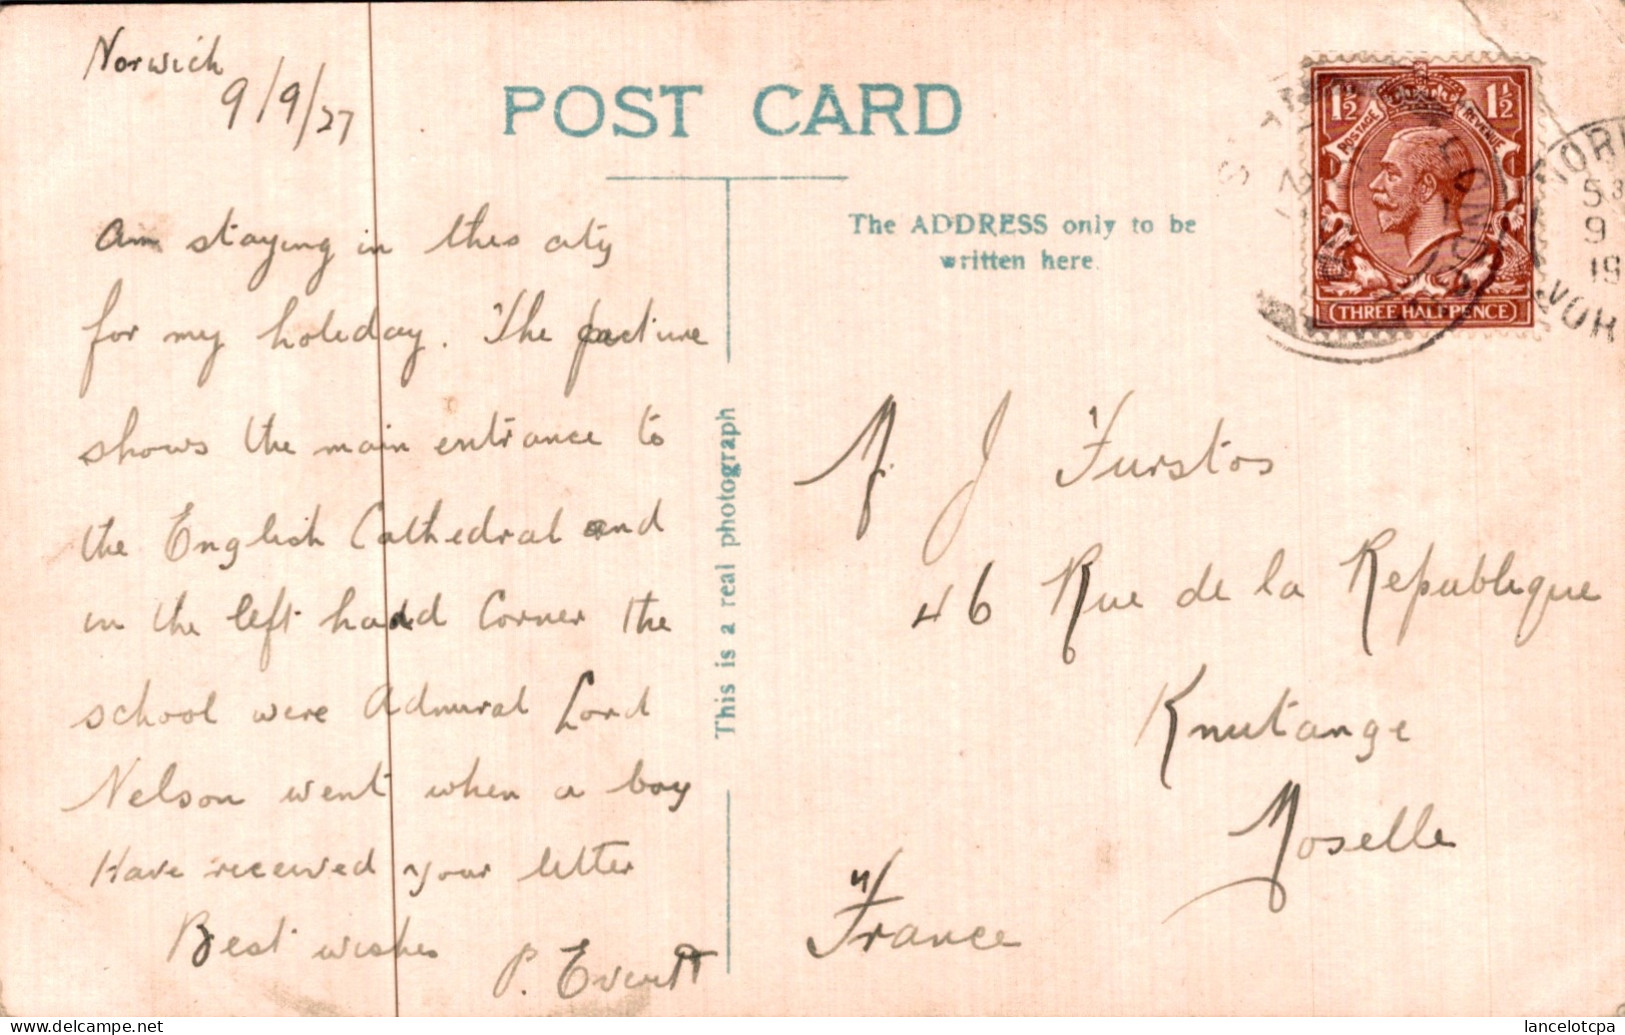 Norwich
9/9/27
Am staying in this city
for my holiday. The picture
shows the main entrance to
the English Cathedral and
in the left hand corner the
school were Admiral Lord
Nelson went when a boy
Have received your letter
Best wishes
P. Everitt
POST CARD
The ADDRESS only to be
written here.
This is a real photograph
1½ 1½
POSTAGE REVENUE
THREE HALFPENCE
M. J Furstos
46 Rue de la Republique
Knutange
Moselle
France
lancelotcpa